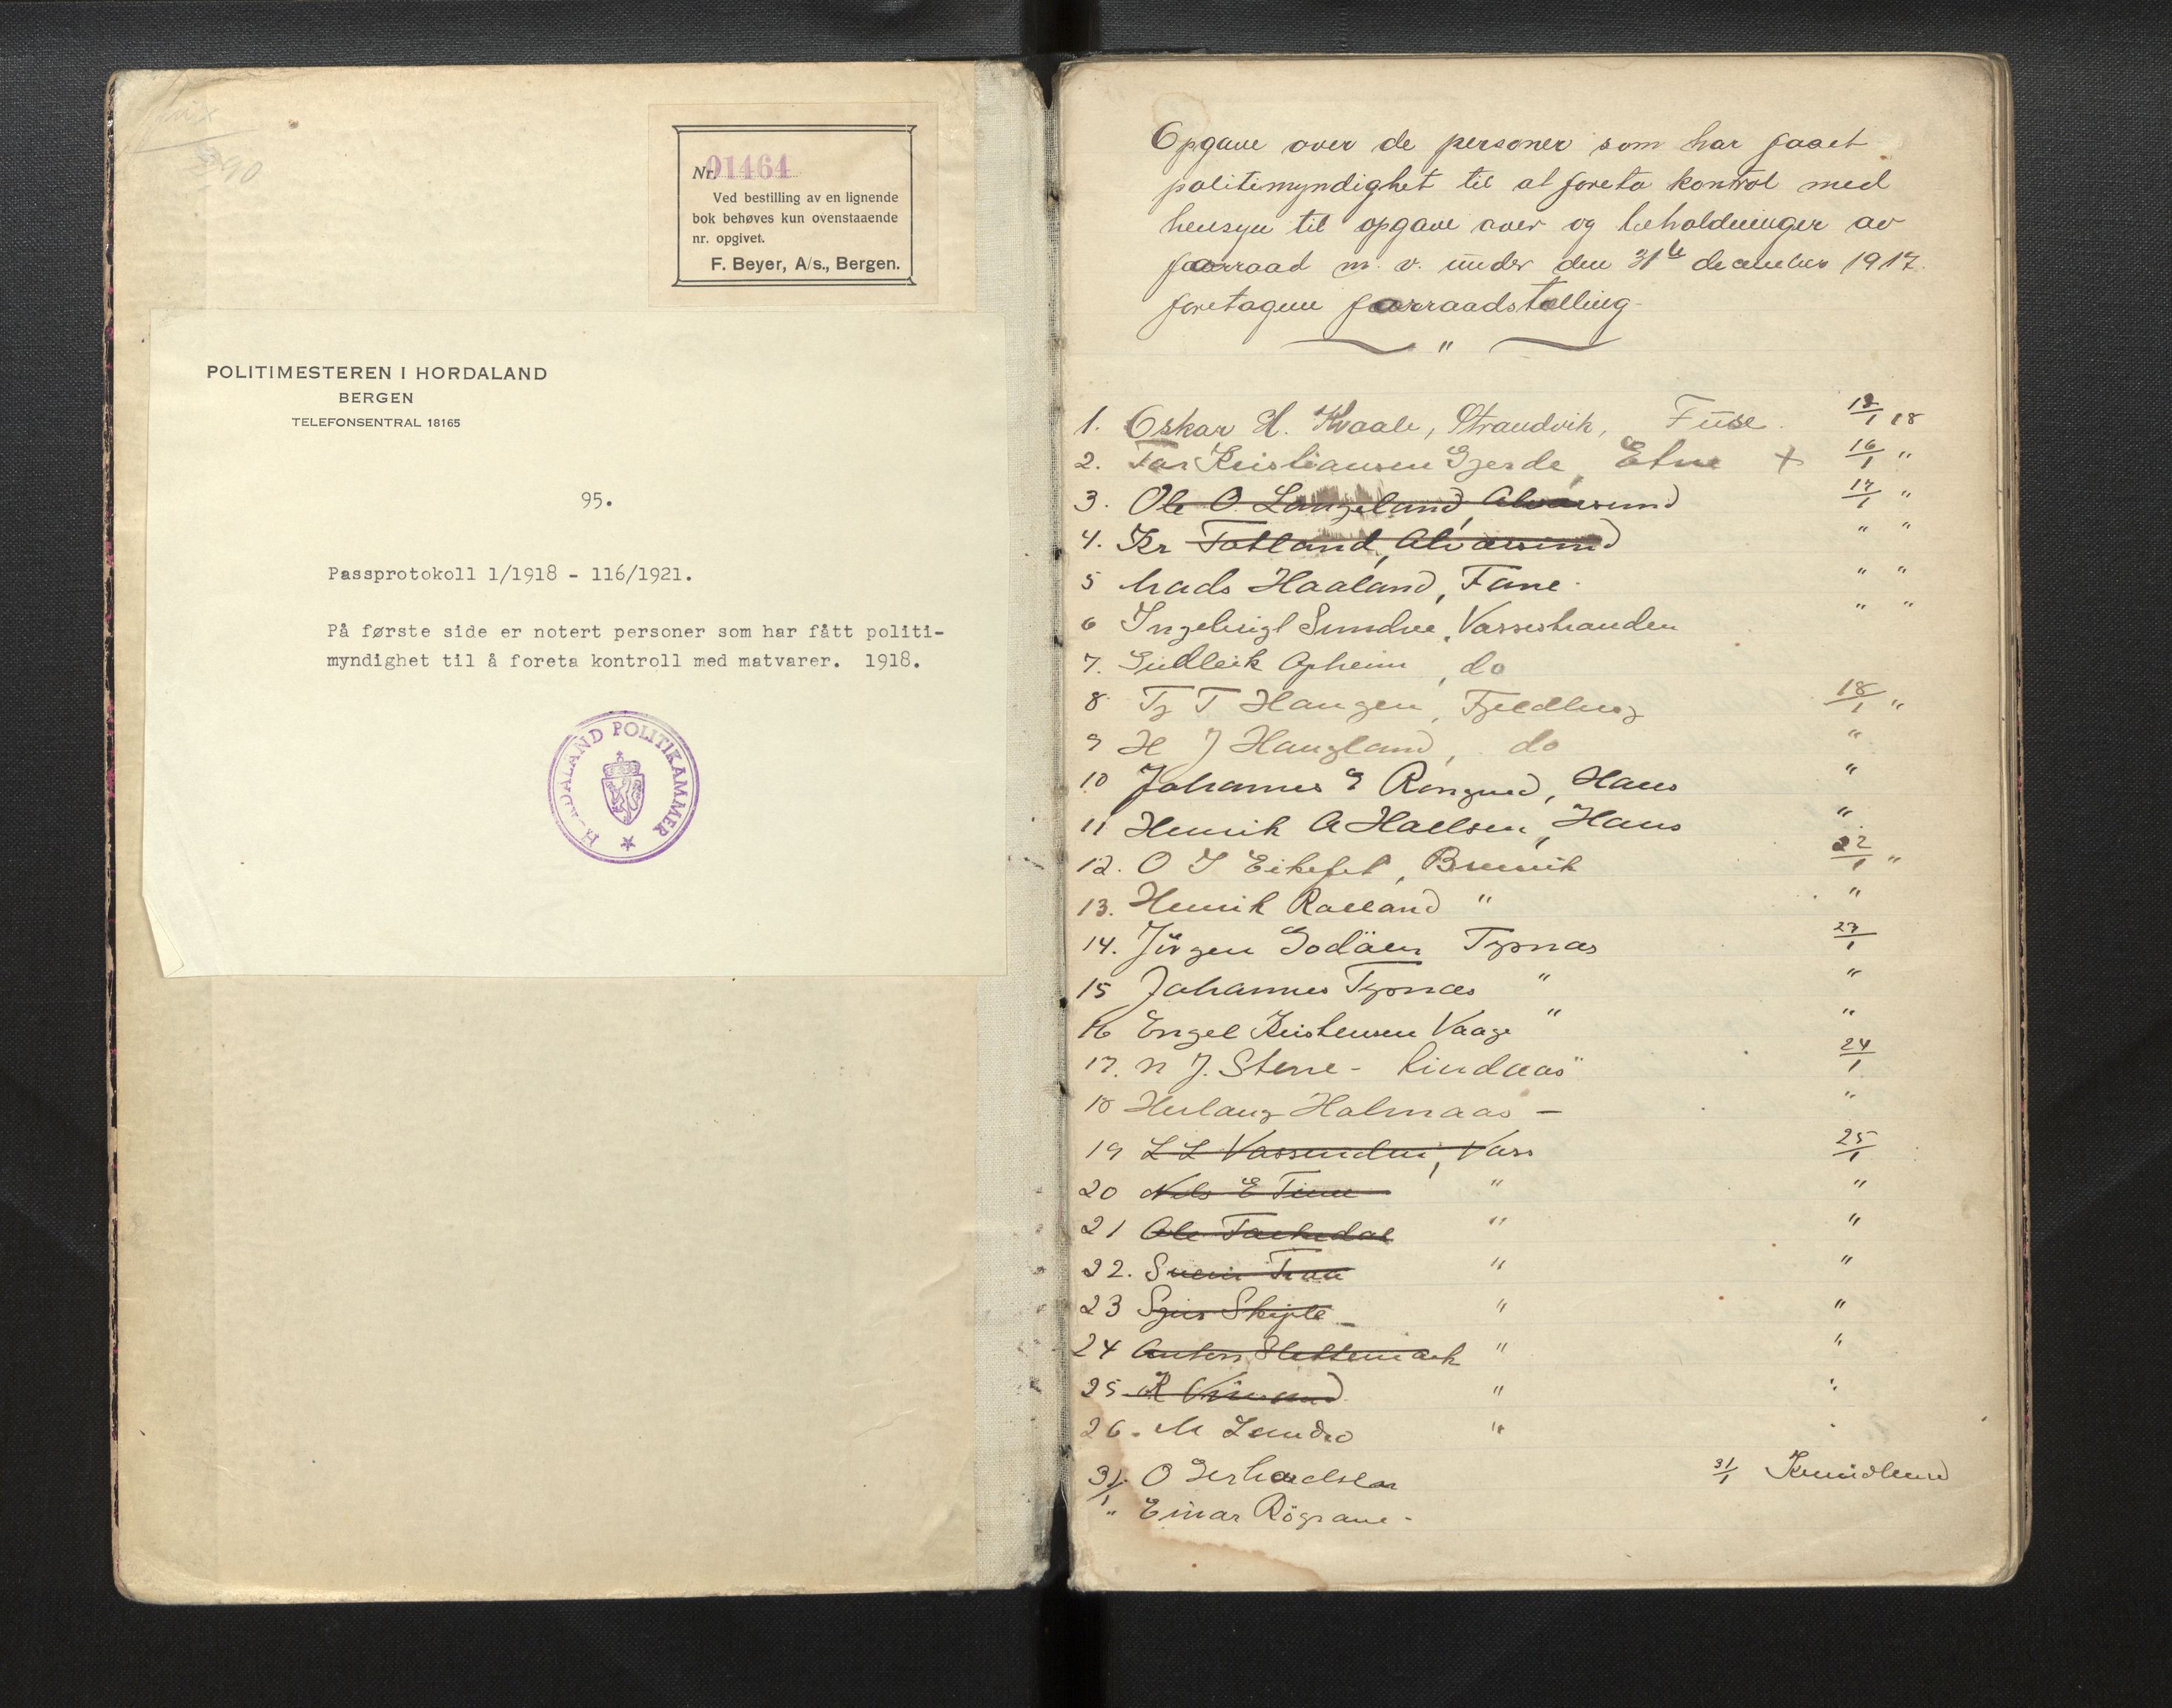 Nr. 01464
Ved bestilling av en lignende
bok behøves kun ovenstaaende
nr. opgivet.
F. Beyer, A/s., Bergen.
POLITIMESTEREN I HORDALAND
BERGEN
TELEFONSENTRAL 18165
95.
Passprotokoll 1/1918 - 116/1921.
På første side er notert personer som har fått politi-
myndighet til å foreta kontroll med matvarer. 1918.
HORDALAND POLITIKAMMER
Opgave over de personer som har faaet
politimyndighet til at foreta kontrol med
hensyn til opgave over og beholdninger av
forraad m. v. under den 31te december 1917.
foretagne forraadstælling.
1. Oskar H. Kvaale, Strandvik, Fuse. 12/1 18
2. Tor Kristiansen Gjerde, Etne + 16/1 "
3. Ole O. Langeland, Alversund 17/1 "
4. Kr Totland, Alversund " "
5 Mads Haaland, Fane. " "
6 Ingebrigt Sundve, Vossestranden " "
7. Gudleik Opheim, do
8 T. Haugen, Fjeldberg 18/1 "
9 H J Haugland, do "
10 Johannes Rongved, Haus "
11 Henrik A Haelsen, Haus "
12. O J Eikefet, Bruvik 22/1 "
13. Henrik Raeland " "
14. Jörgen Godöen Tysnæs 23/1
15 Johannes Tysnæs " "
16 Engel Kristensen Vaage " "
17. N J. Stene - Lindaas 24/1
18 Herlaug Holmaas - "
19 L L Vassenden, Voss 25/1
20 Nels E Finne " "
21 Ole " "
22. Svein Traa " "
23 Sjur Skiple " "
24 Anton Slettemark " "
25 R " "
26. M " "
31/1. O Gerhardsen 31/1 Kvindherred
" Einar